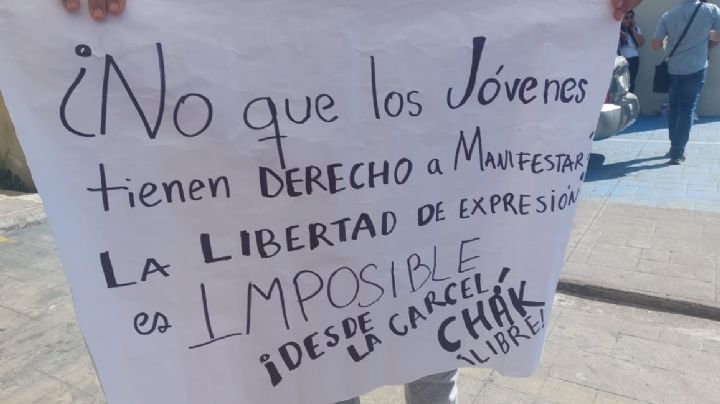 ¿No que los Jóvenes
tienen DERECHO a MANIFESTAR?
LA LIBERTAD DE EXPRESIÓN
es IMPOSIBLE
¡DESDE
LA CARCEL!
CHÁK
¡LIBRE!